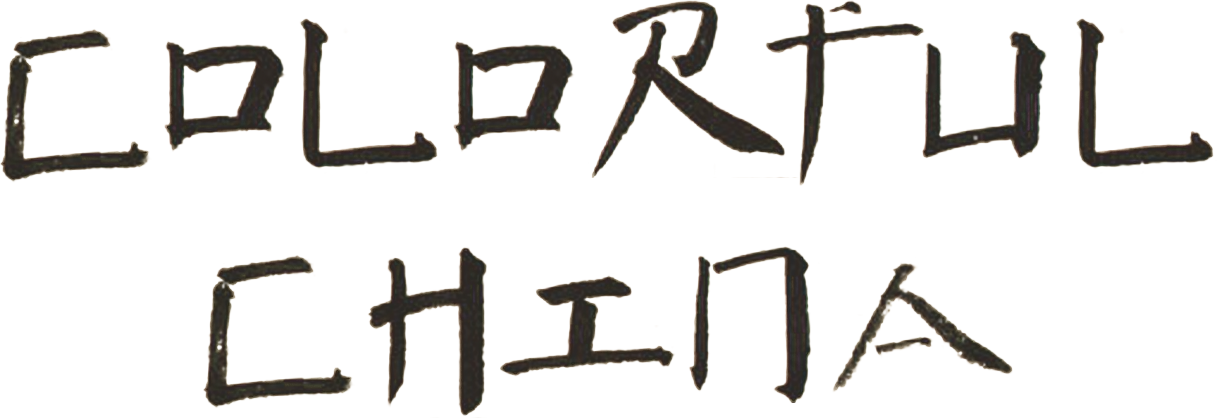 COLORFUL
CHINA